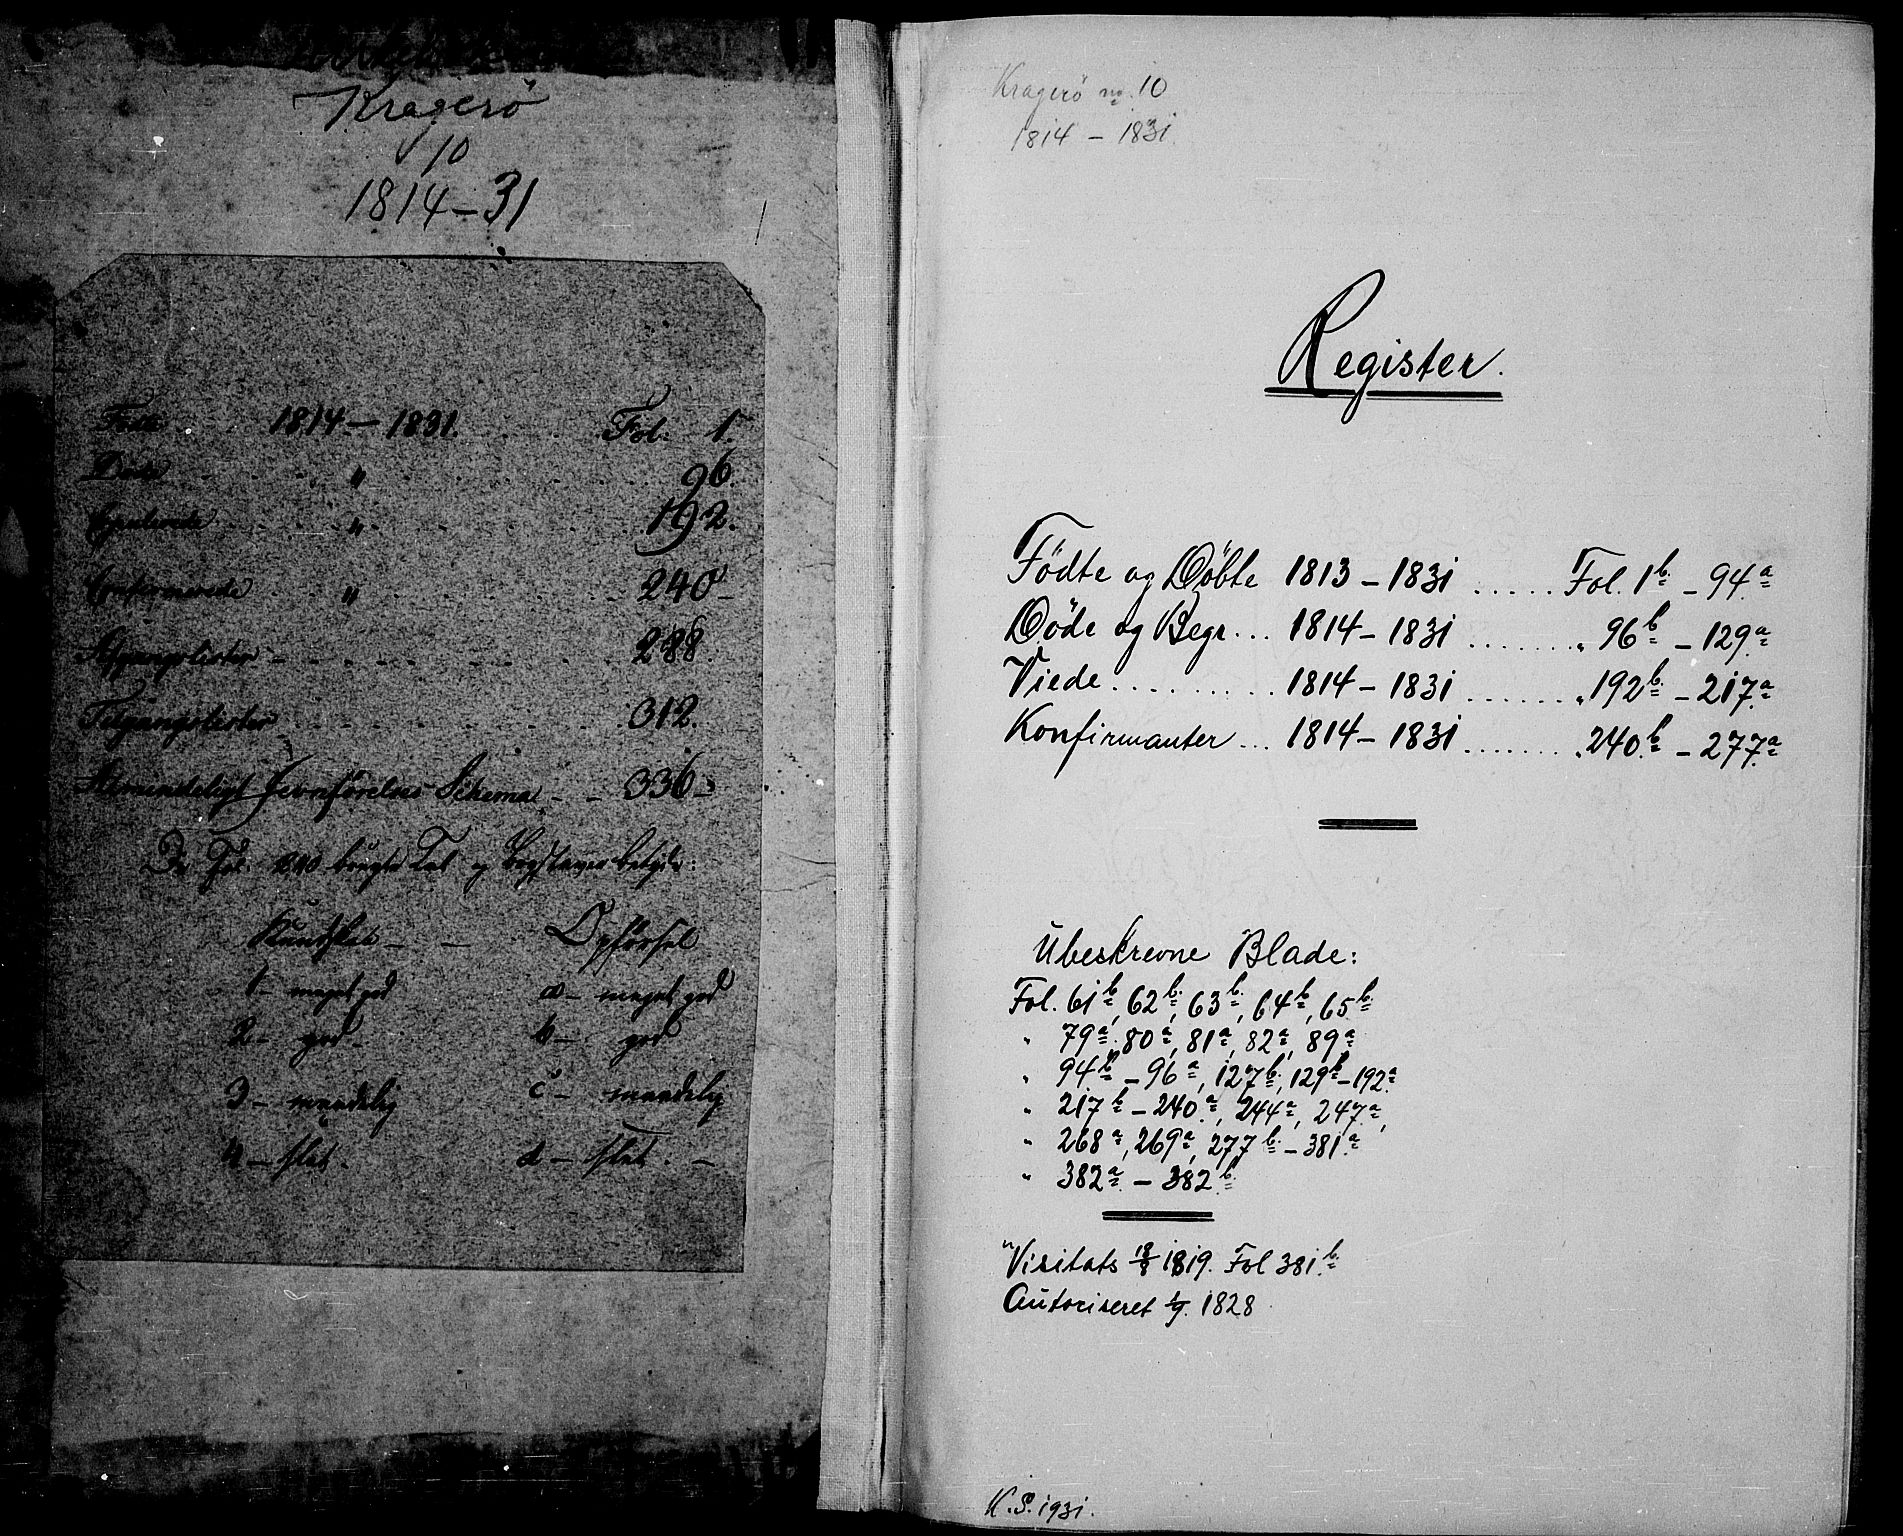 Kragerö
10
1814–31
Födte . . . 1814 – 1831. . . . . Fol: 1.
Döde . . . . " . . . . 96.
Copulerede . . . . " . . . . 192.
Confirmerede . . . " . . . . 240 –
Afgangslister – . . . . . . 288.
Tilgangslister . . . . . . . 312.
Almindeligt Jevnförelses Schema . – – 336 –
De Fol: 240 brugte Tal og Bogstaver betyde:
Kundskab – – Opförsel
1 – meget god a – meget god
2 – god – b – god
3 – maadelig c – maadelig
4 – slet. d – slet. –
Kragerö no. 10
1814 – 1831.
Register.
Födte og Döbte 1813 – 1831 ..... Fol. 1b. – 94.a
Döde og Begr... 1814 – 1831 ....... " 96b – 129.a
Viede.......... 1814 – 1831 ....... " 192b. – 217.a
Konfirmanter ... 1814 – 1831 ....... " 240.b – 277.a
Ubeskrevne Blade:
Fol. 61b, 62b, 63b, 64b, 65b
" 79a, 80a, 81a, 82a, 89a
" 94b – 96a, 127b, 129b – 192a
" 217b – 240.a, 244a, 247.a,
" 268a, 269a, 277b – 381.a
" 382a – 382.b
"Visitats 18/8 1819. Fol 381.b
Autoriseret 1/9. 1828
K.S. 1931.